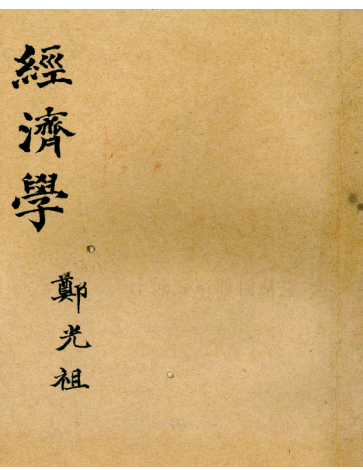 經濟學
鄭光祖